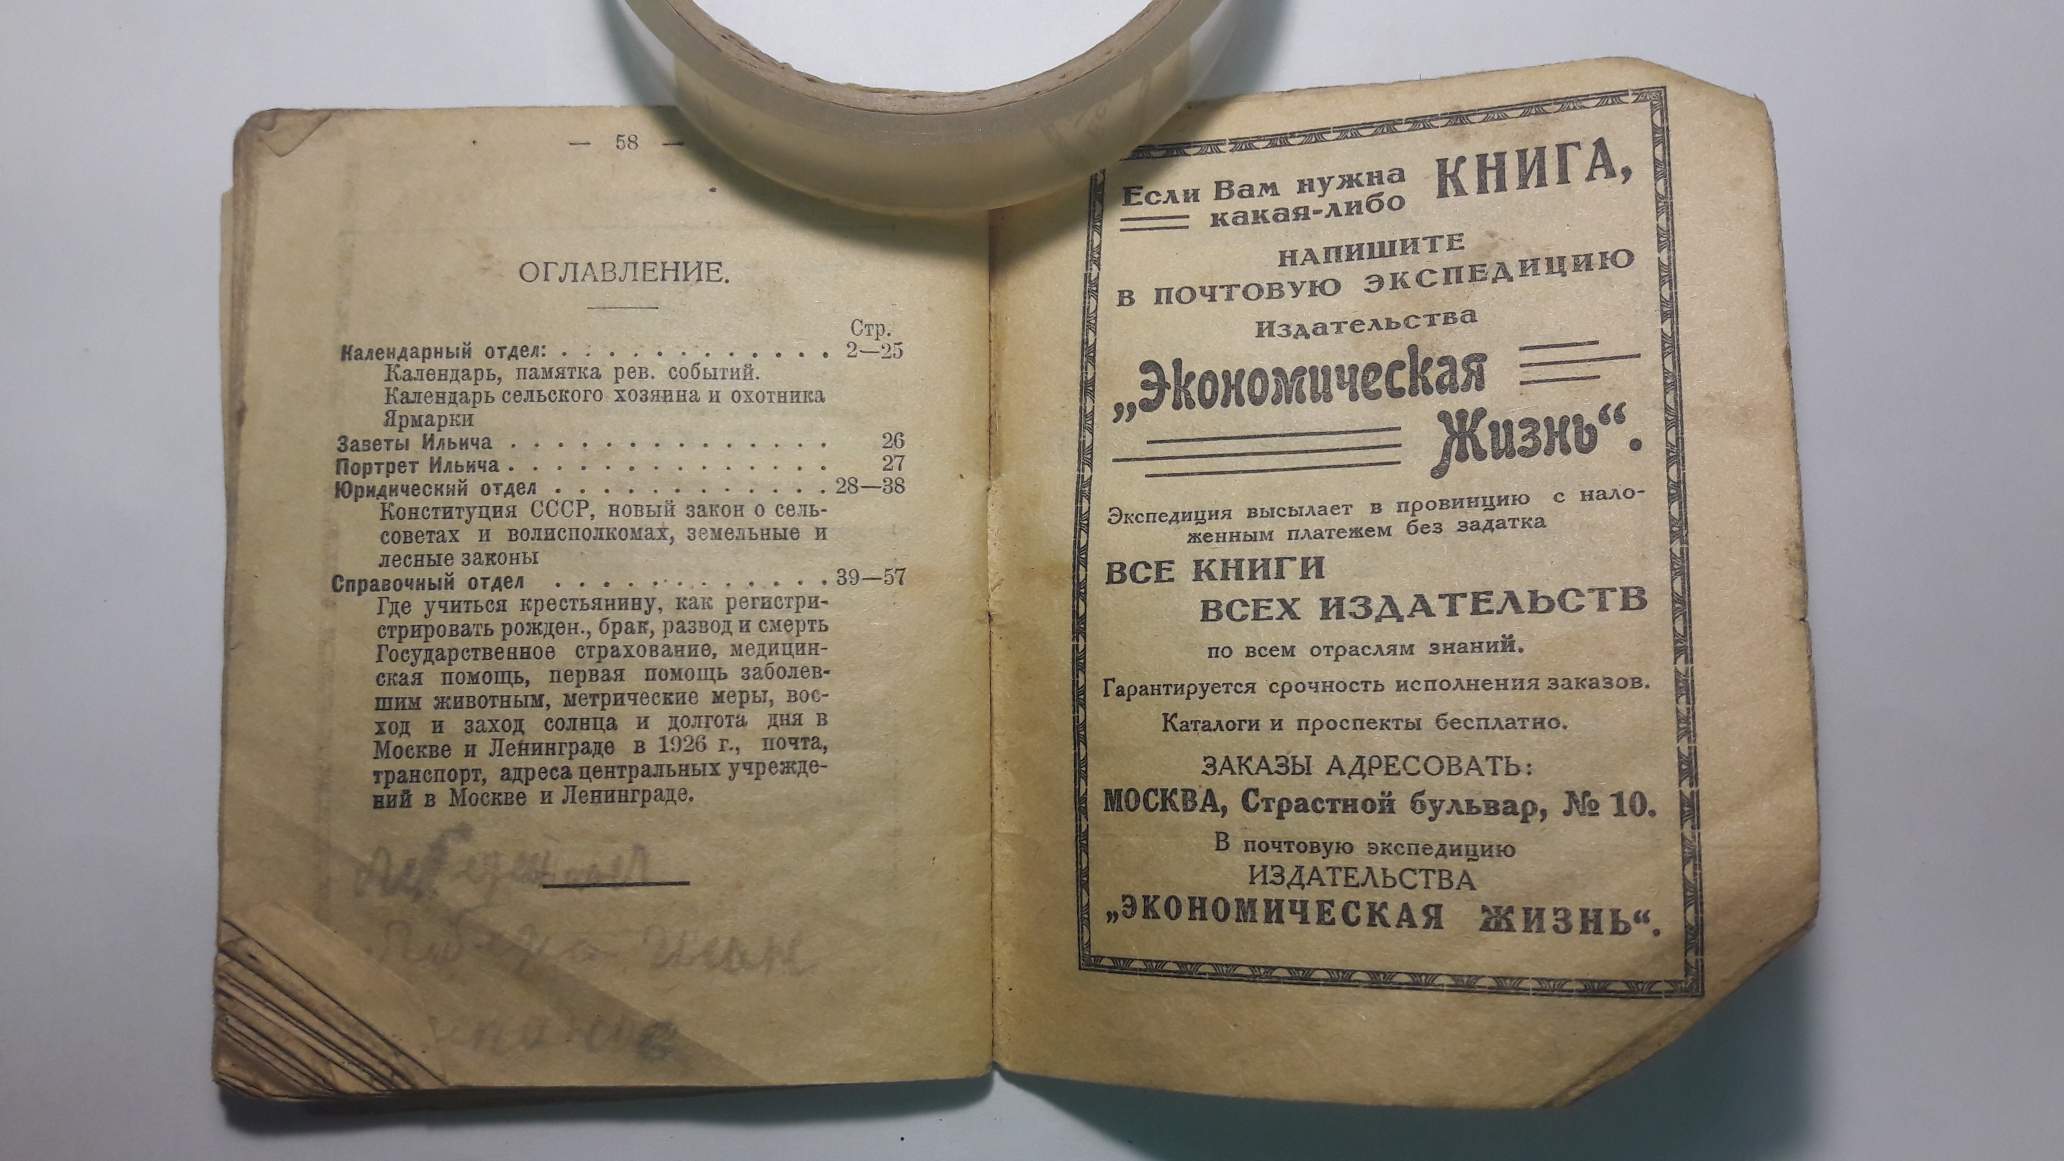 — 58 —
ОГЛАВЛЕНИЕ.
Стр.
Календарный отдел: . . . . . . . . . . . . 2—25
Календарь, памятка рев. событий.
Календарь сельского хозяина и охотника
Ярмарки
Заветы Ильича . . . . . . . . . . . . . . 26
Портрет Ильича . . . . . . . . . . . . . . 27
Юридический отдел . . . . . . . . . . . . 28—38
Конституция СССР, новый закон о сель-
советах и волисполкомах, земельные и
лесные законы
Справочный отдел . . . . . . . . . . . . 39—57
Где учиться крестьянину, как регистри-
стрировать рожден., брак, развод и смерть
Государственное страхование, медицин-
ская помощь, первая помощь заболев-
шим животным, метрические меры, вос-
ход и заход солнца и долгота дня в
Москве и Ленинграде в 1926 г., почта,
транспорт, адреса центральных учрежде-
ний в Москве и Ленинграде.
Если Вам нужна КНИГА,
какая-либо
НАПИШИТЕ
В ПОЧТОВУЮ ЭКСПЕДИЦИЮ
Издательства
„Экономическая
Жизнь“.
Экспедиция высылает в провинцию с нало-
женным платежем без задатка
ВСЕ КНИГИ
ВСЕХ ИЗДАТЕЛЬСТВ
по всем отраслям знаний.
Гарантируется срочность исполнения заказов.
Каталоги и проспекты бесплатно.
ЗАКАЗЫ АДРЕСОВАТЬ:
МОСКВА, Страстной бульвар, № 10.
В почтовую экспедицию
ИЗДАТЕЛЬСТВА
„ЭКОНОМИЧЕСКАЯ ЖИЗНЬ“.